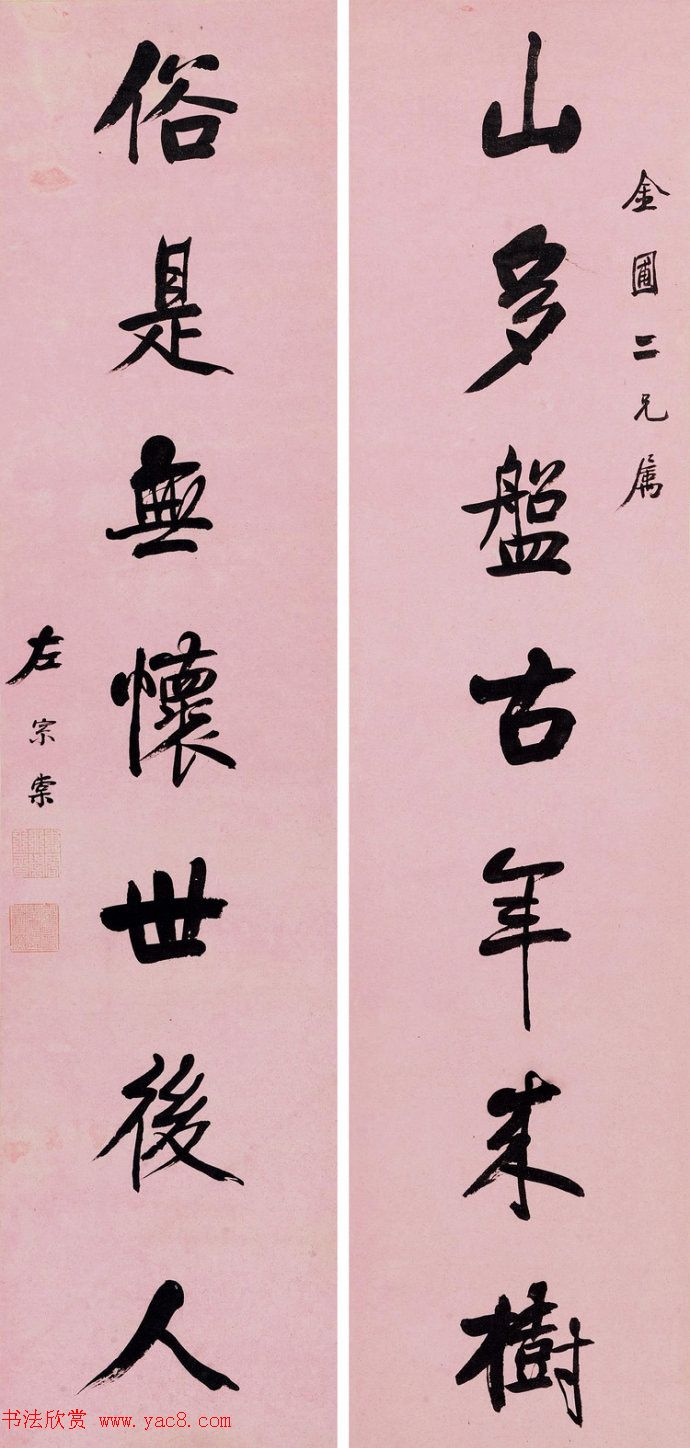 金圃二兄属
山多盤古年来樹
俗是無懷世後人
左宗棠
书法欣赏 www.yac8.com